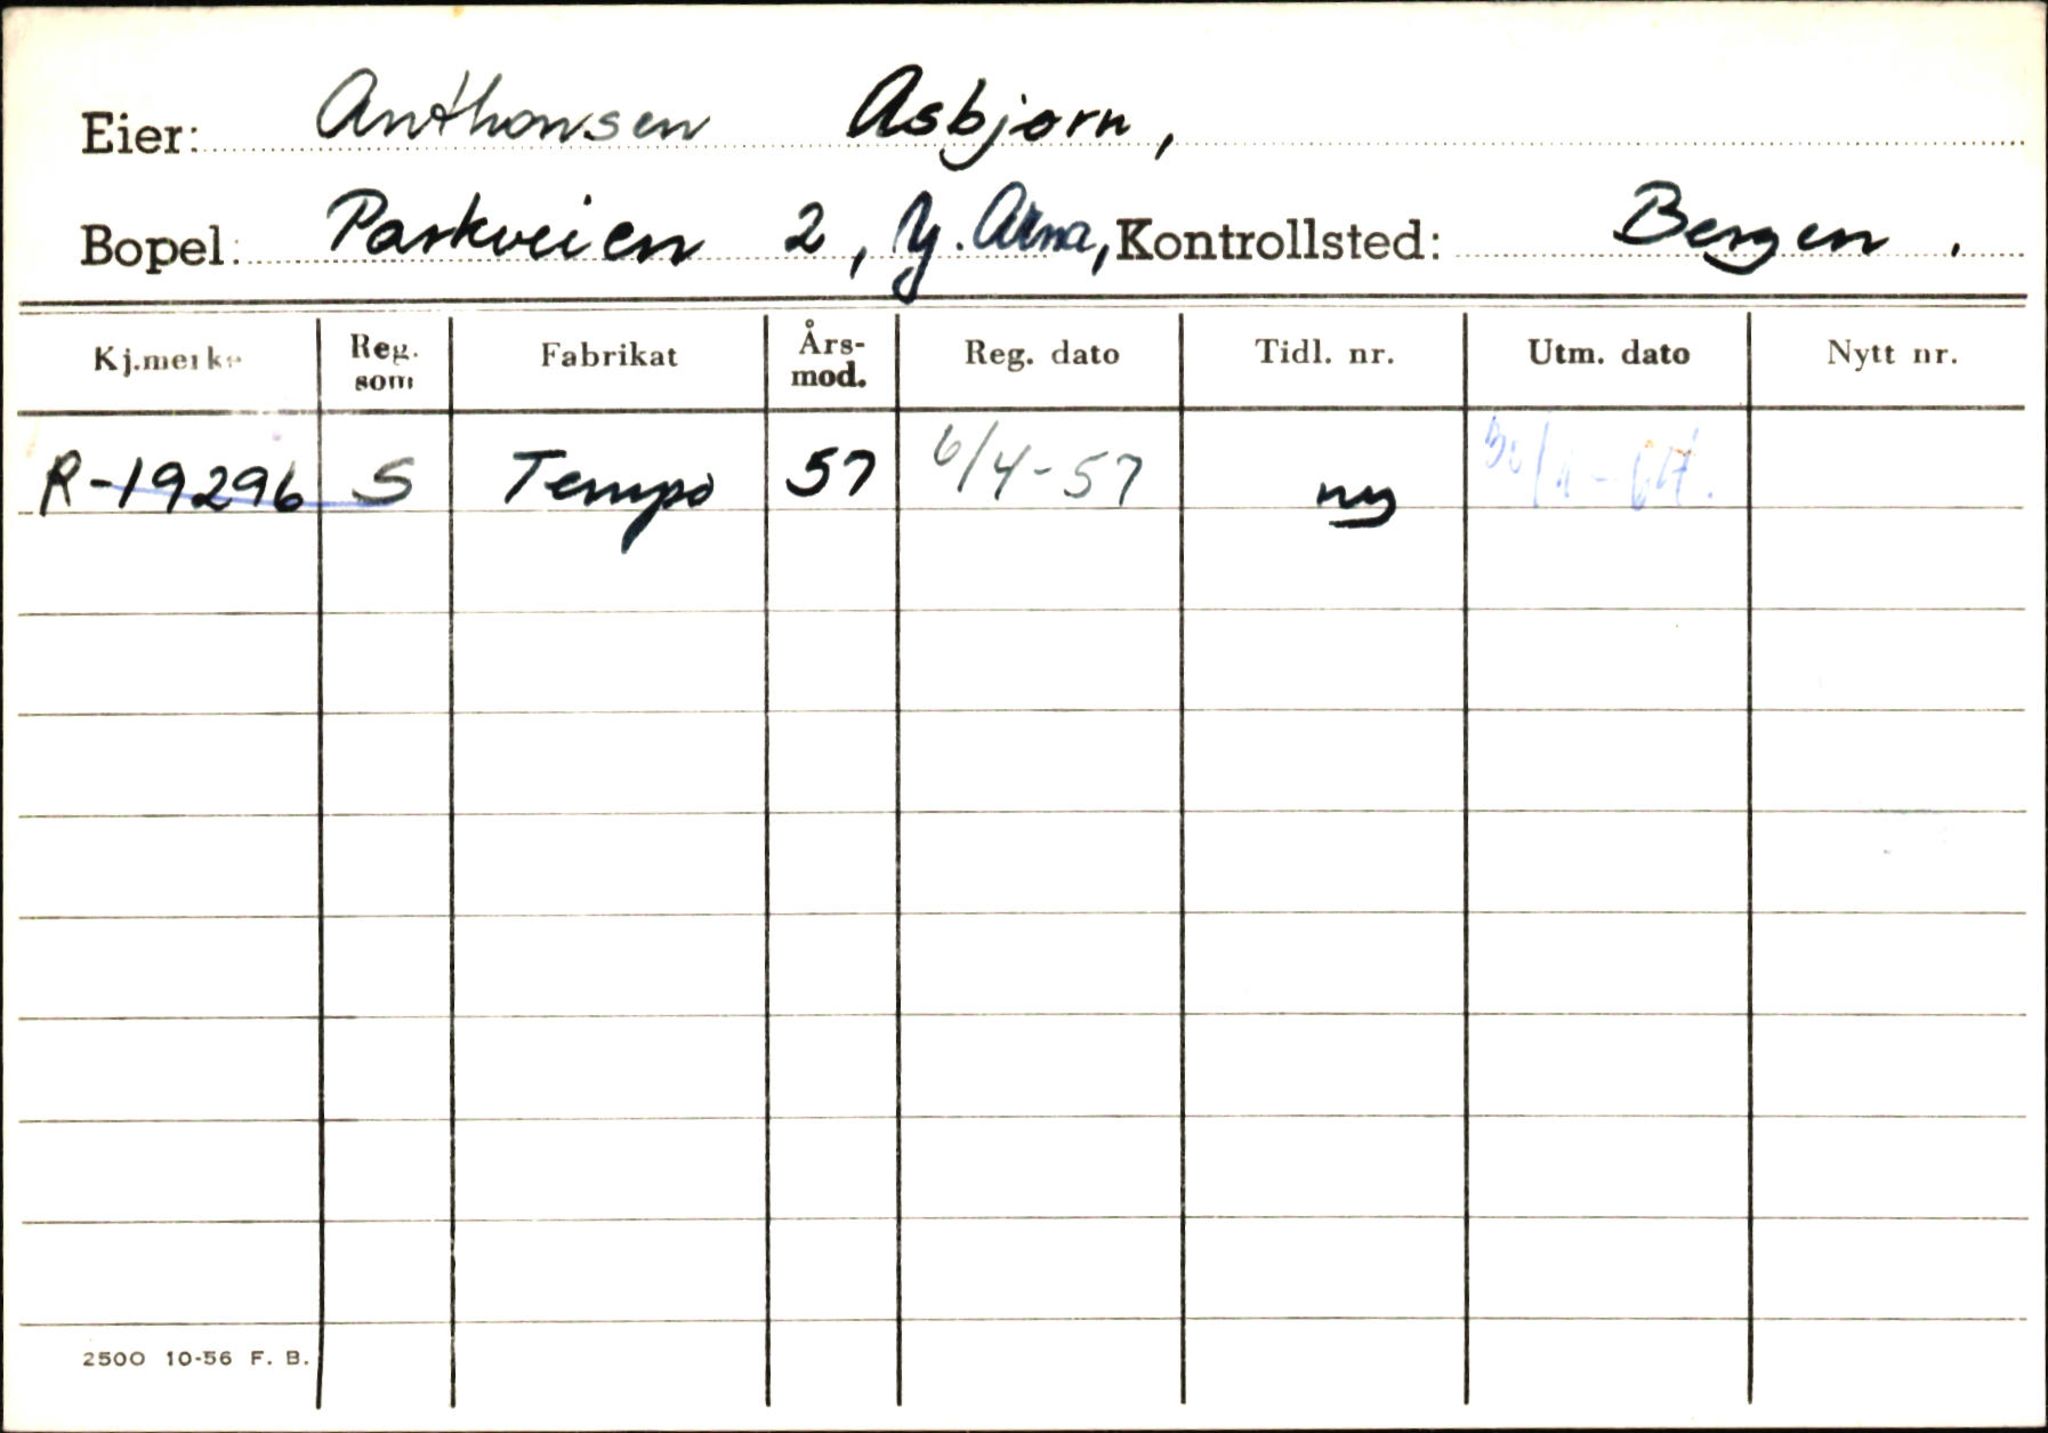 Eier: Anthonsen Asbjørn,
Bopel: Parkveien 2, Y. Arna, Kontrollsted: Bergen.
Kj.merke Reg. som Fabrikat Års-mod. Reg. dato Tidl. nr. Utm. dato Nytt nr.
R-19296 S Tempo 57 6/4-57 ny
2500 10-56 F. B.